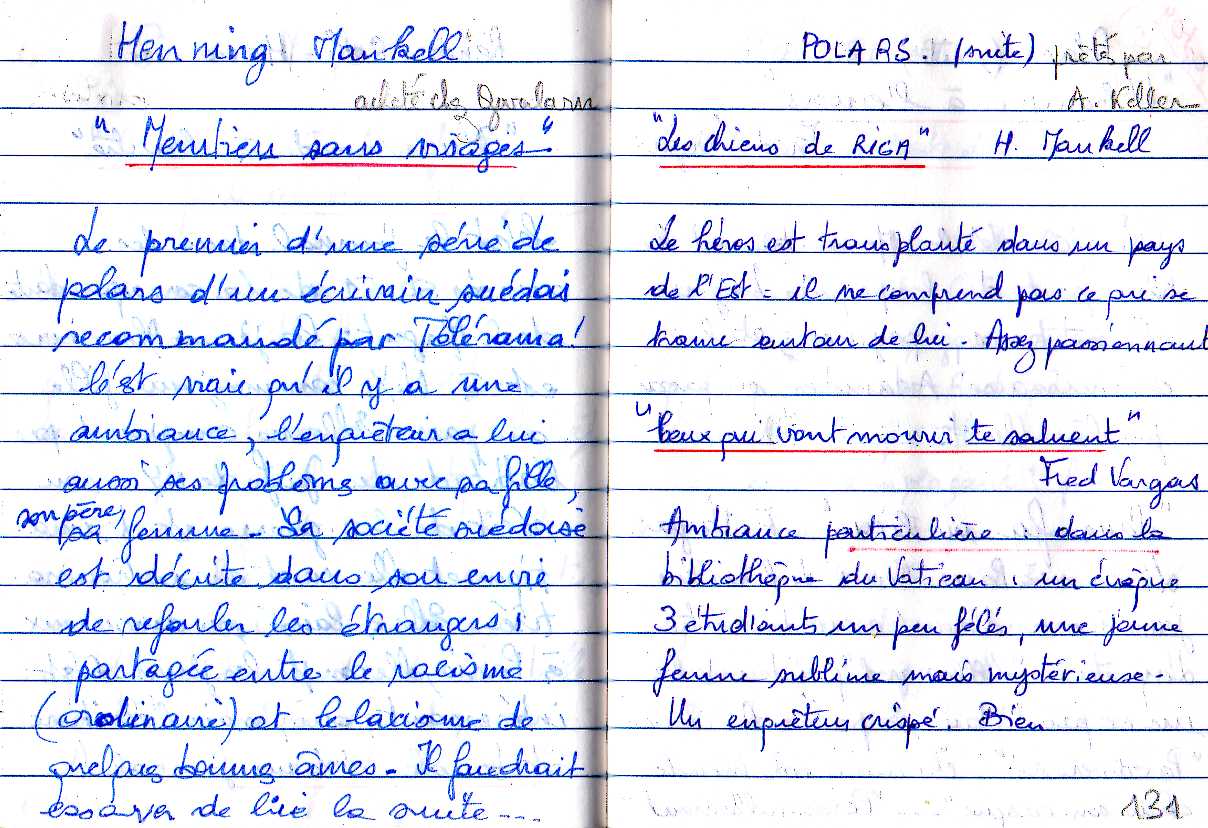 Henning Mankell
acheté chez
"Meurtriers sans visages"
Le premier d'une série de
polars d'un écrivain suédois
recommandé par Télérama!
C'est vraie qu'il y a une
ambiance, l'enquêteur a lui
aussi ses problèmes avec sa fille,
son père,
sa femme. La société suédoise
est décrite dans son envie
de refouler les étrangers,
partagée entre le racisme
(ordinaire) et le laxisme de
quelques bonnes âmes. Il faudrait
essayer de lire la suite....
POLARS. (suite) prêté par
A. Keller
"Les chiens de RIGA" H. Mankell
Le héros est transplanté dans un pays
de l'Est - il ne comprend pas ce qui se
trame autour de lui. Assez passionnant
"Ceux qui vont mourir te saluent"
Fred Vargas
Ambiance particulière : dans la
bibliothèque du Vatican : un évêque
3 étudiants un peu fêlés, une jeune
femme sublime mais mystérieuse.
Un enquêteur crispé. Bien
131